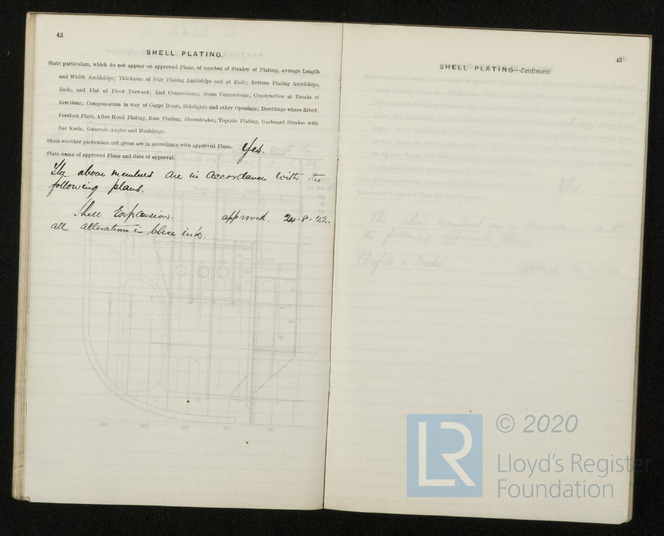 42
SHELL PLATING.
State particulars, which do not appear on approved Plans, of number of Strakes of Plating, average Length
and Width Amidships; Thickness of Side Plating Amidships and at Ends; Bottom Plating Amidships,
Ends, and Flat of Floor Forward; End Connections; Seam Connections; Construction at Breaks of
Erections; Compensation in way of Cargo Doors, Sidelights and other Openings; Doublings where fitted;
Forefoot Plate, After Hood Plating, Boss Plating; Sheerstrakes, Topside Plating, Garboard Strakes with
Bar Keels; Gunwale Angles and Mouldings.
State whether particulars not given are in accordance with approved Plans. Yes
State name of approved Plans and date of approval.
The above members are in accordance with the
following plans.
Shell Expansion. approved. 24-8-22.
all alterations in blue ink.
43
SHELL PLATING—Continued.
LR
© 2020
Lloyd's Register
Foundation